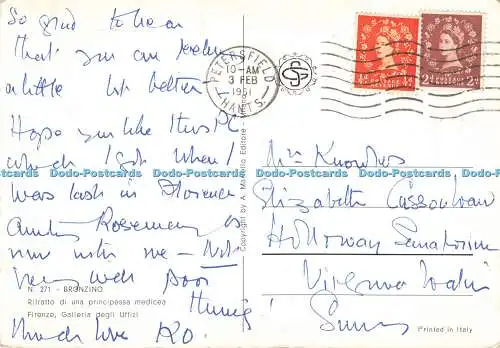 So glad to hear
that you are feeling
a little bit better
Hope you like this PC
which I got when I
was last in Florence
Aunty Rosemary is
now with me - Not
very well poor
thing!
Much love RO
N. 271 - BRONZINO
Ritratto di una principessa medicea
Firenze, Galleria degli Uffizi
Copyright by A. Editore
PETERSFIELD
10-AM
3 FEB
1961
HANTS.
POSTAGE REVENUE
½d ½d
2d 2d
Mrs Knowles
Elizabeth
Holloway Sanatorium
Virginia Water
Surrey
Printed in Italy
Da-Postcards Da-Postcards Da-Postcards Da-Postcards Da-Postcards